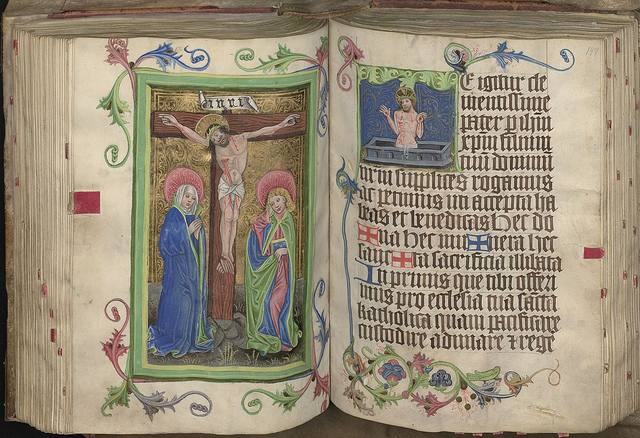 inri
E igitur cle
mentissime
pater p ihm
xpm filium
tuum dominum
nrm supplices rogamus
ac petimus uti accepta ha
beas et benedicas Hec do
na hec munera hec
sancta sacrificia illibata
In primis que tibi offeri
mus pro ecclesia tua sancta
katholica quam pacificare
custodire adunare ⁊ rege